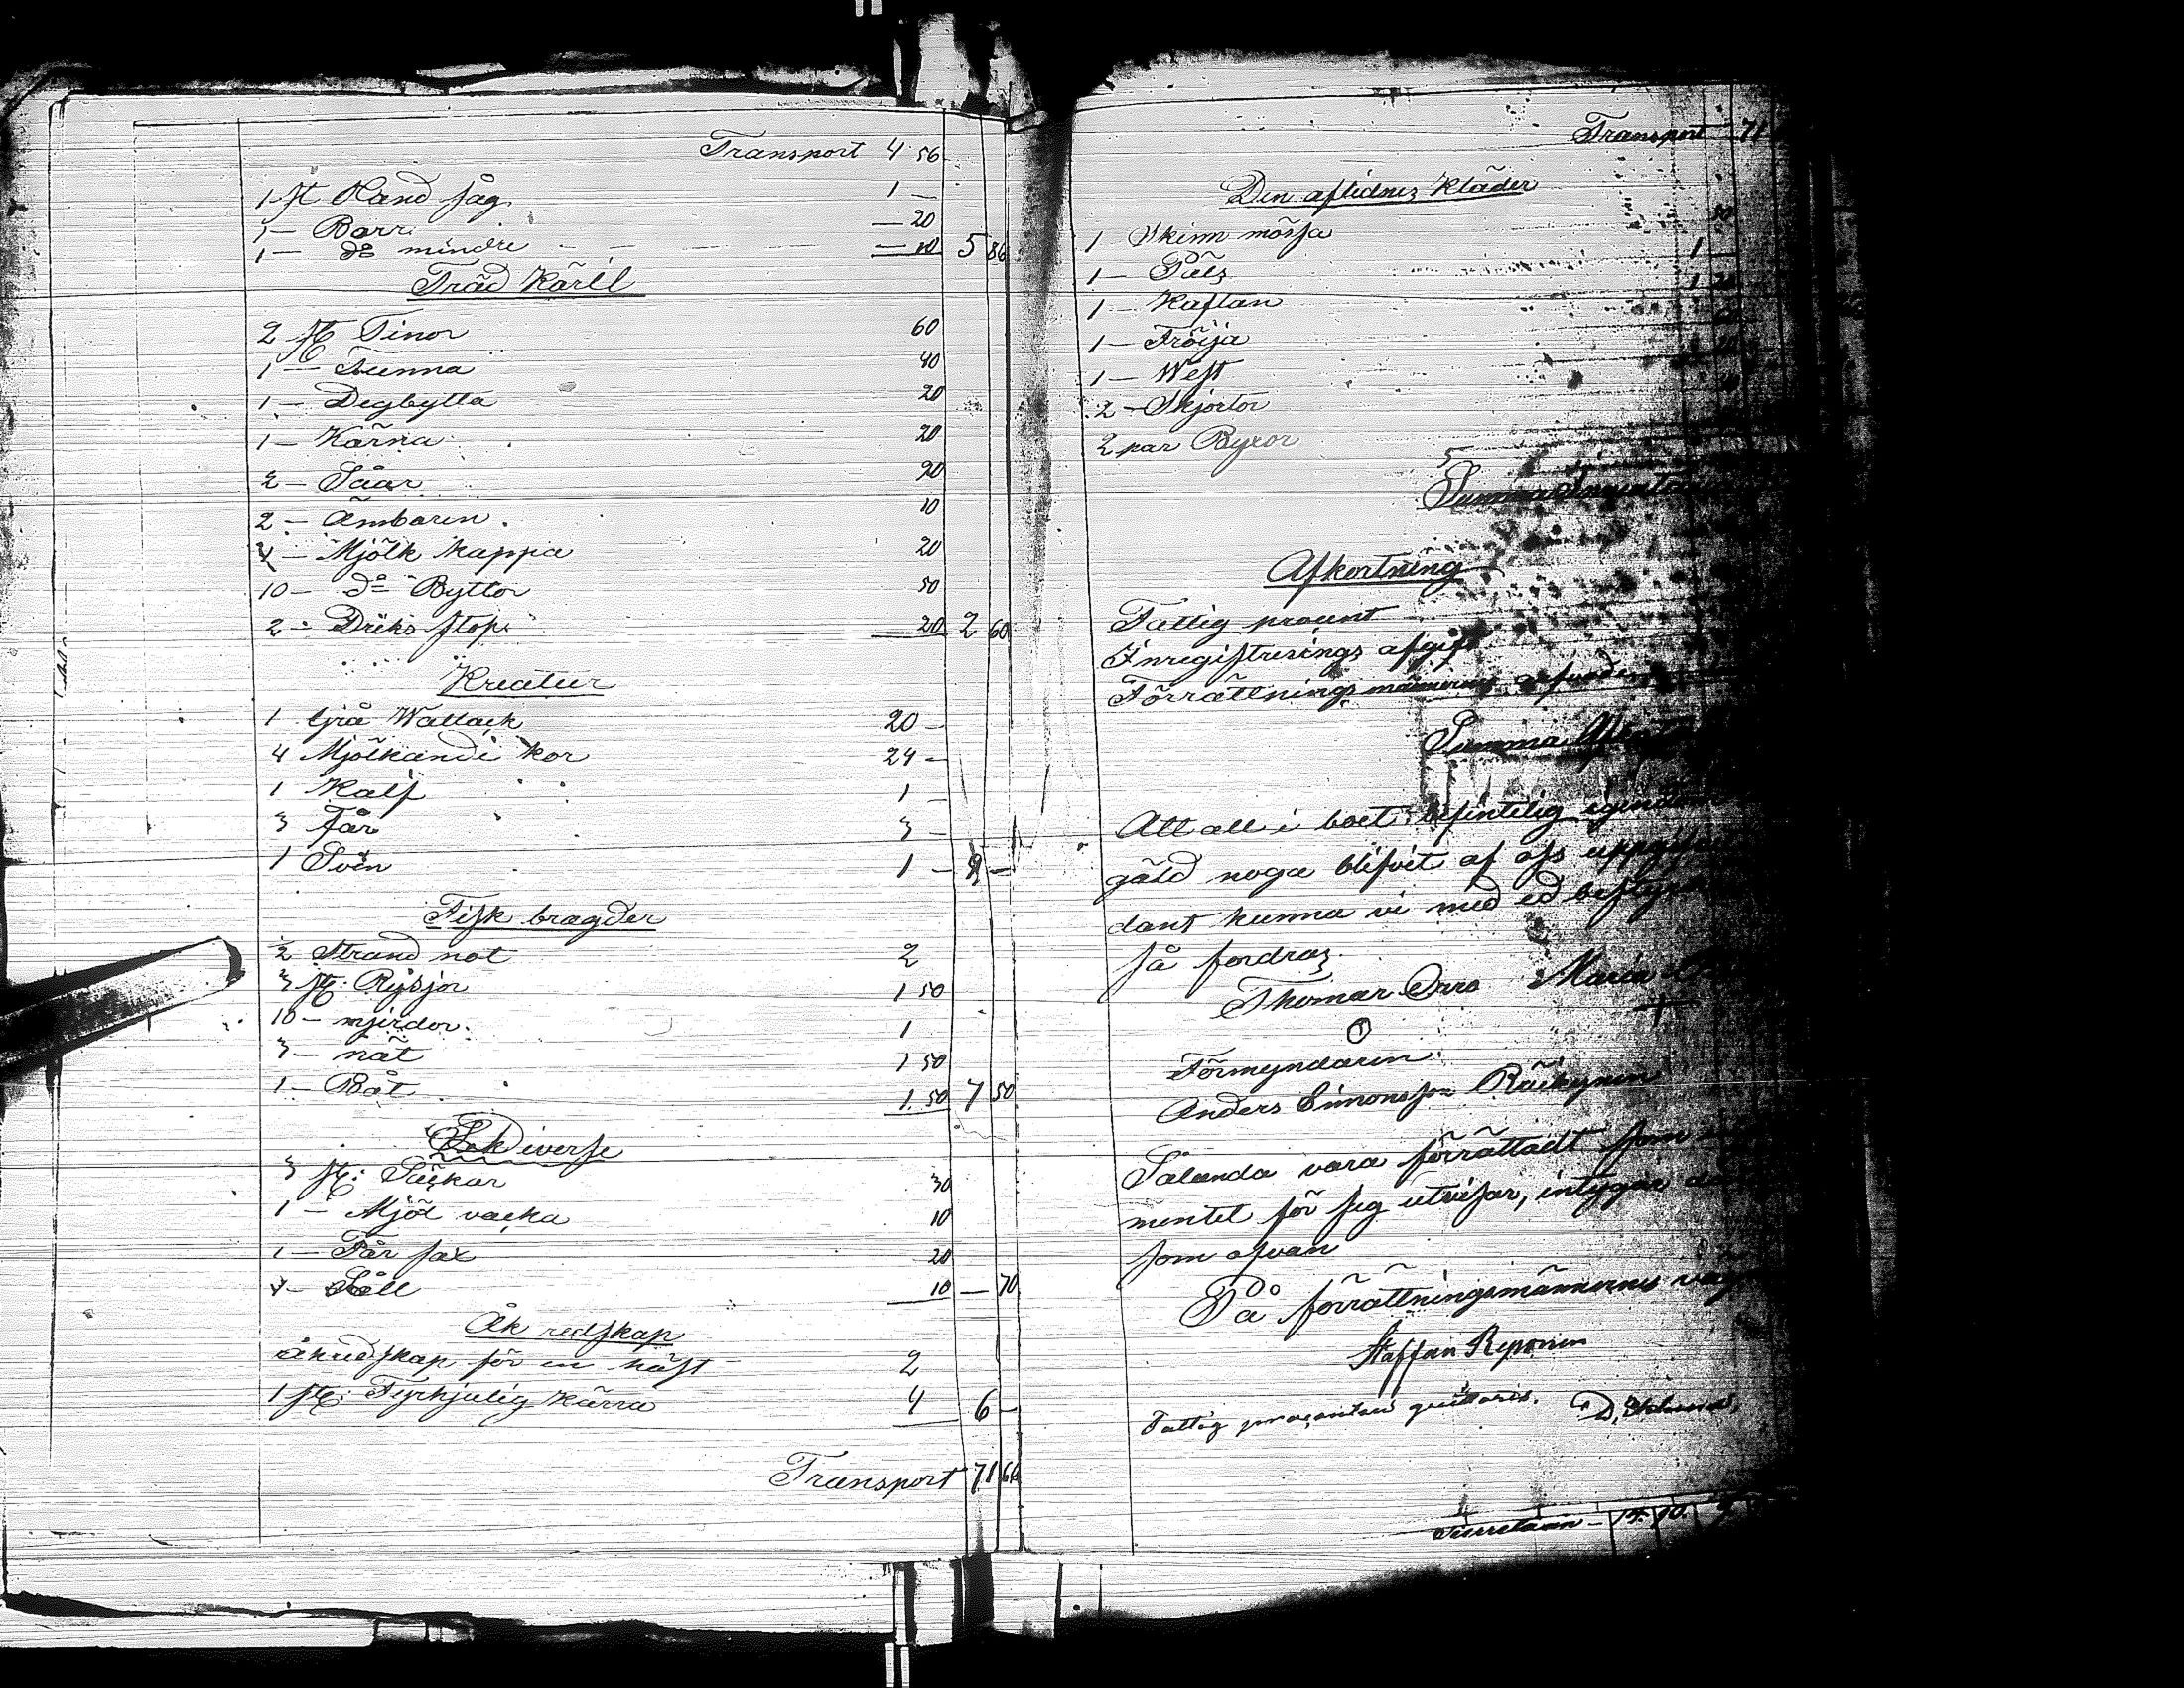 Transport 4 56
1 st Hand såg 1 —
1 — Borr — 20
1 — do mindre — 10 5 86
Träd Kärll
2 st Tinor 60
1 — Tunna 40
1 — Degbytta 20
1 — Kärna 20
2 — Såar 20
2 — Ämbaren 10
1 — Mjölk kappa 20
10 — do Byttor 50
2 — Driks stop 20 2 60
Kreatur
1 Grå Wallack 20 —
4 Mjölkande kor 24 —
1 Kalf 1 —
3 Får 3 —
1 Svin 1 —
Fisk bragder
1/2 Strand not 2
3 st: Rysjor 1 50
10 — mjerdor 1
3 — nät 1 50
1 — Båt 1 50 7 50
Diverse
3 st: Säckar 30
1 — Mjöl vacka 10
1 — Får sax 20
1 — Såll 10 — 70
Åk redskap
åkredskap för en häst 2
1 st: Fyrhjulig Kärra 4 6 —
Transport 71 66
Transport 71
Den aflidnes Kläder
1 Skinn mössa 50
1 — Päls 1
1 — Kaftan 1 20
1 — Tröija
1 — West
2 — Skjortor
2 par Byxor
Summa
Afkortning
Fattig procent
Inregistrerings afgift
Förrättningsmännernes arfvode
Summa
Att all i boet befintelig egendom
gäld noga blifvit af oss uppgifvet
dant kunna vi med ed bestyrka
så fordras.
Thomas Orro Maria
Förmyndaren
Anders Simonsson Räikynen
Sålunda vara förrättadt som
mentet för sig utvisar, intygar
som ofvan
På förrättningsmännernes vägnar
Staffan Reponen
Fattig procenten quitteris. D,